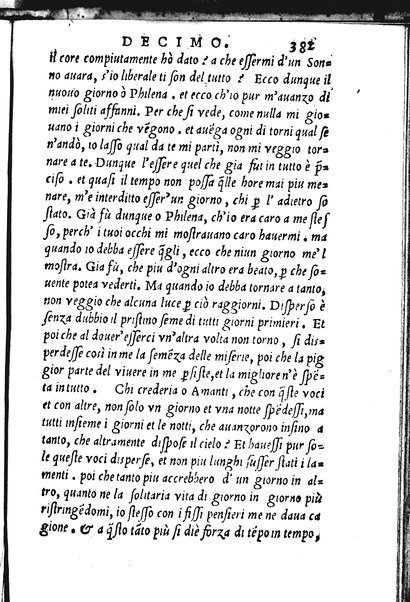 DECIMO. 381
il core compiutamente hò dato? a che essermi d'un Son-
no auara, s'io liberale ti son del tutto? Ecco dunque il
nuouo giorno ò Philena. et ecco ch'io pur m'auanzo di
miei soliti affanni. Per che si vede, come nulla mi gio-
uano i giorni che vẽgono. et auẽga ogni dì torni qual se
n'andò, io lasso qual da te mi partì, non mi veggio tor-
nare a te. Dunque l'essere quel che gia fui in tutto è p̃-
ciso. et quasi il tempo non possa q̃lle hore mai piu me-
nare, m'è interditto esser'un giorno, chi p̱ l'adietro so
stato. Già fù dunque o Philena, ch'io era caro a me stes
so, perch'i tuoi occhi mi mostrauano caro hauermi. ma
quando io debba essere q̃gli, ecco che niun giorno me'l
mostra. Gia fù, che piu d'ogni altro era beato, p̱ che so-
uente potea vederti. Ma quando io debba tornare a tanto,
non veggio che alcuna luce p̱ ciò raggiorni. Disperso è
senza dubbio il pristino seme di tutti giorni primieri. Et
poi che al douer'esserci vn'altra volta non torno, si dis-
perdesse così in me la semẽza delle miserie, poi che la pig
gior parte del viuere in me p̱siste, et la migliore n'è spẽ-
ta in tutto. Chi crederia o Amanti, che con q̃ste voci
et con altre, non solo vn giorno et vna notte spẽdessi, ma
tutti insieme i giorni et le notti, che auanzorono insino a
tanto, che altramente dispose il cielo? Et hauessi pur so-
le queste voci disperse, et non piu lunghi fusser stati i la-
menti. poi che tanto piu accrebbero d'un giorno in al-
tro, quanto ne la solitaria vita di giorno in giorno più
ristringẽdomi, io stesso con i fissi pensieri me ne daua ca
gione. & a q̃sto tãto più si diè forza di tẽpo in tempo,